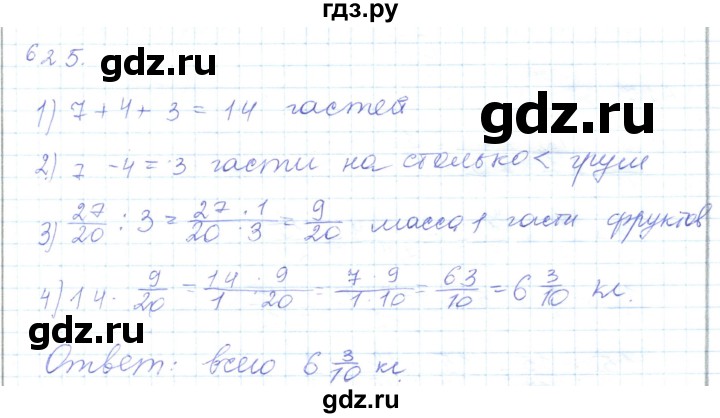 гдз.ру
625.
gdz.ru gdz.ru
1) 7 + 4 + 3 = 14 частей
2) 7 - 4 = 3 части на столько < груш
3) 27/20 : 3 = 27 · 1/20 · 3 = 9/20 масса 1 части фруктов
4) 14 · 9/20 = 14 · 9/1 · 20 = 7 · 9/1 · 10 = 63/10 = 6 3/10 кг.
Ответ: всего 6 3/10 кг.
gdz.ru
gdz.ru
gdz.ru
gdz.ru
gdz.ru